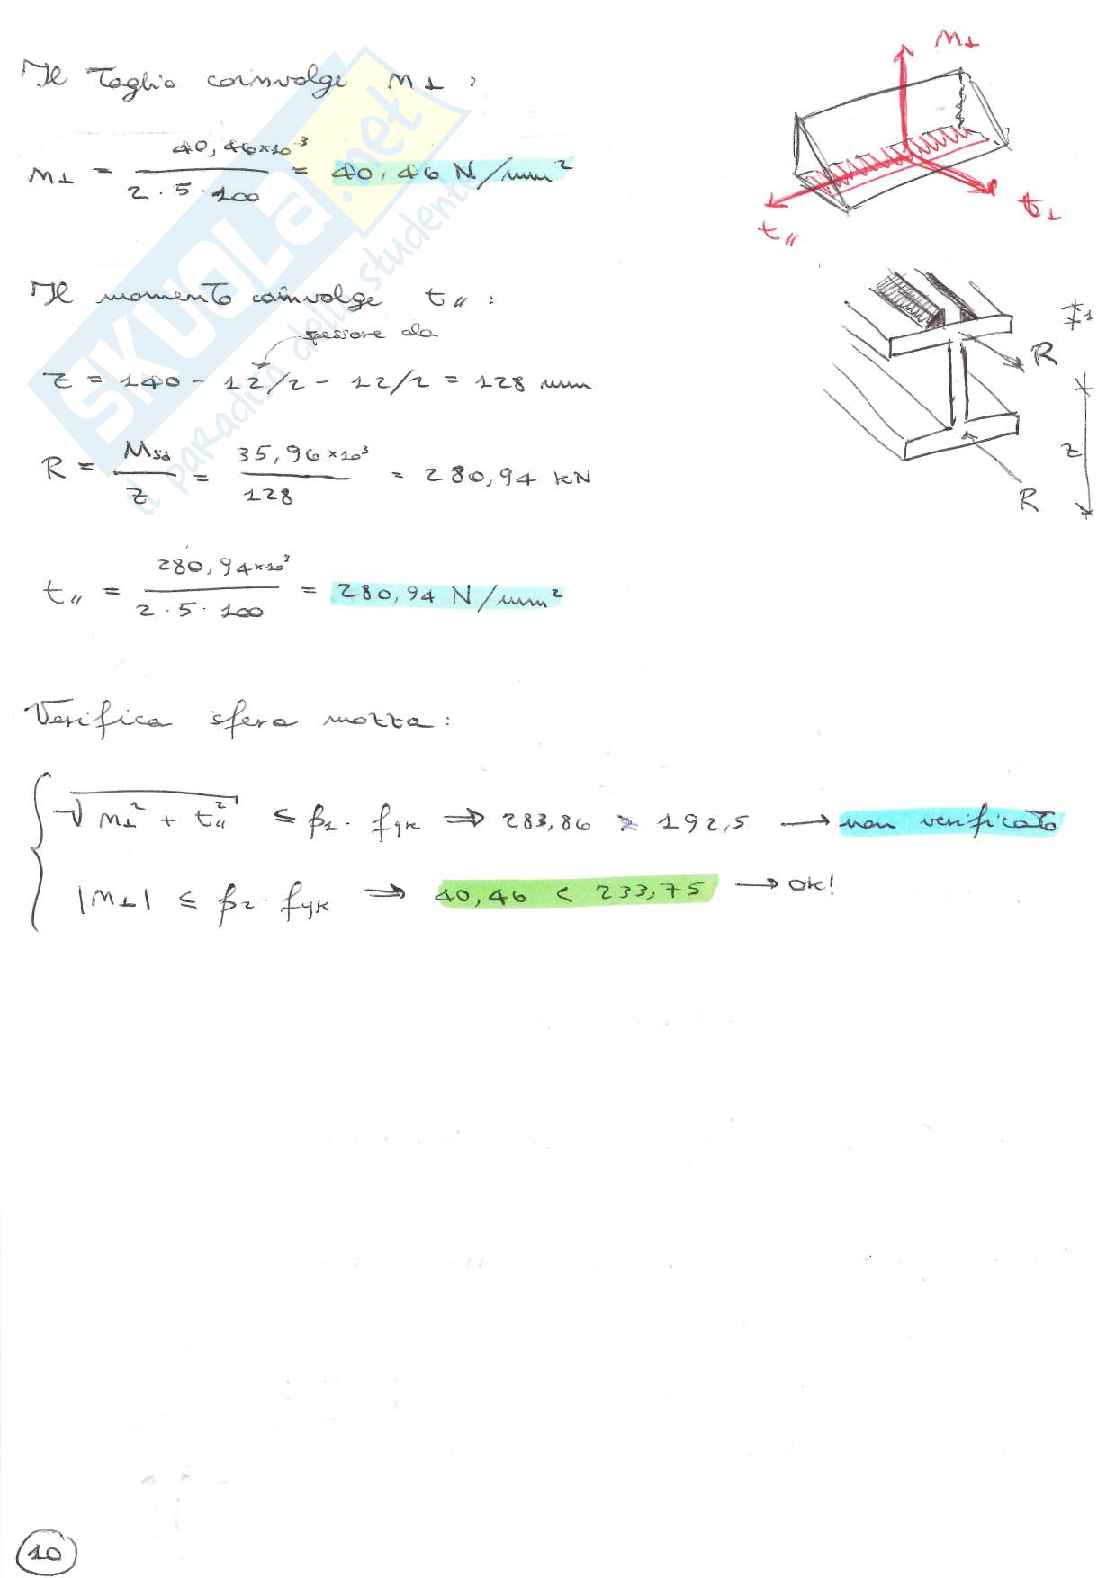 Il Taglio coinvolge n⊥ :
n⊥ = 40,46×10⁻³ / 2 · 5 · 100 = 40,46 N/mm²
Il momento coinvolge t∥ :
spessore ala
z = 140 - 12/2 - 12/2 = 128 mm
R = Msd / z = 35,96×10³ / 128 = 280,94 kN
t∥ = 280,94×10³ / 2 · 5 · 100 = 280,94 N/mm²
Verifica sfera mozza :
√n⊥² + t∥² ≤ β1 · fyk ⇒ 283,86 > 192,5 → non verificato
|n⊥| ≤ β2 · fyk ⇒ 40,46 < 233,75 → ok!
10
n⊥
t⊥
t∥
R
z
R
SKUOLA.net
il paradiso dello studente